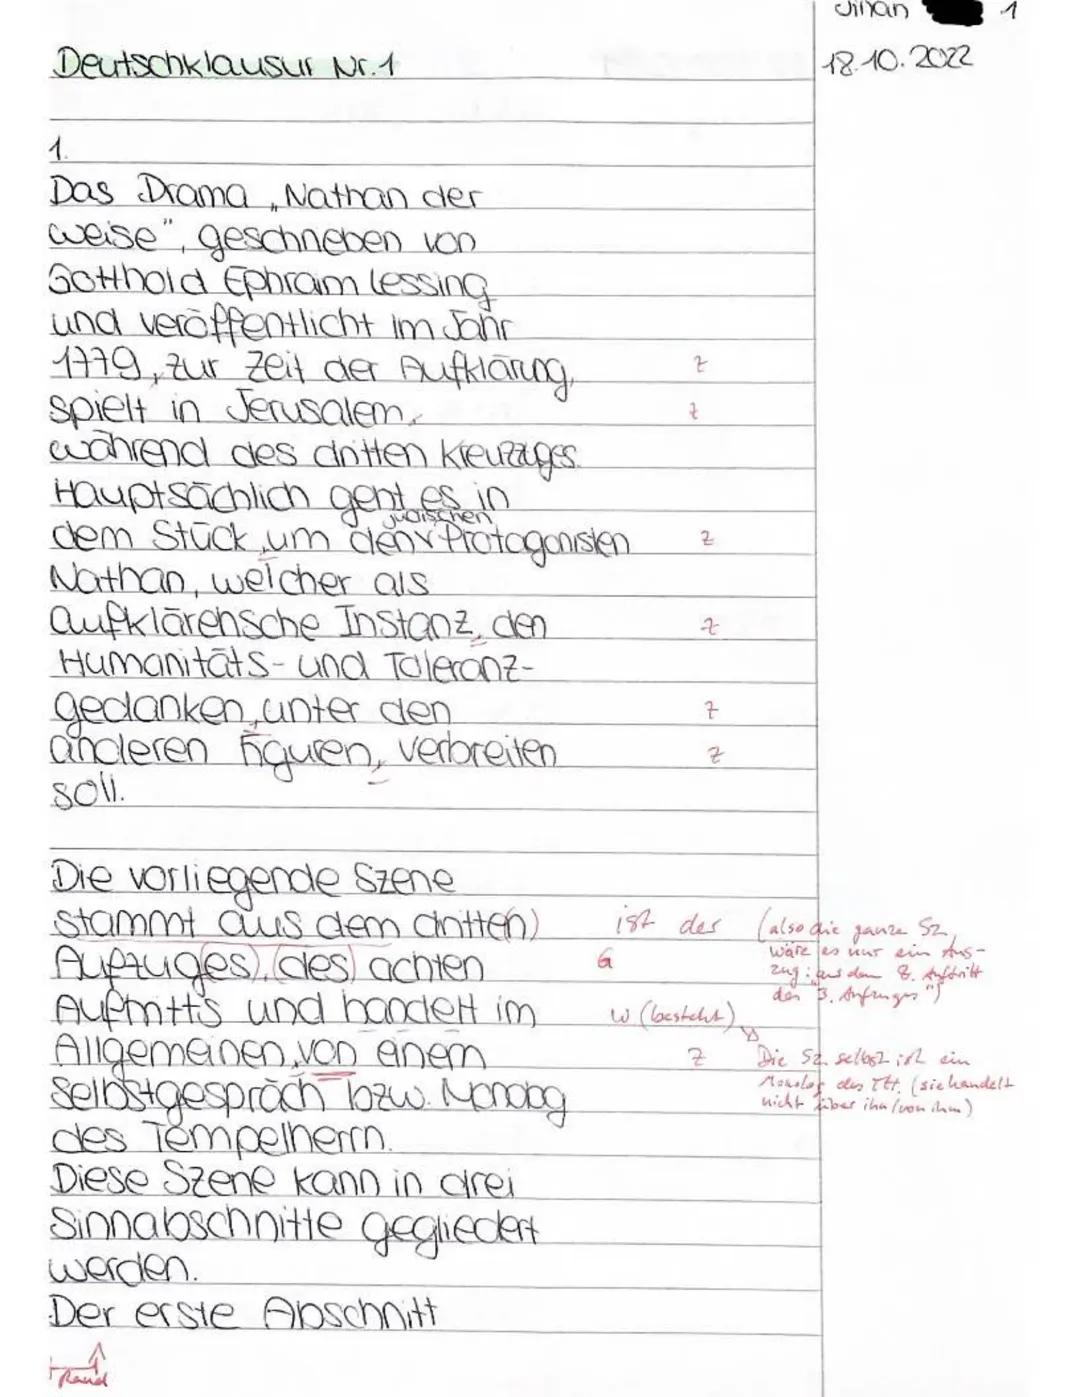 Jihan 1
Deutschklausur Nr. 1
18.10.2022
1.
Das Drama „Nathan der
weise", geschrieben von
Gotthold Ephraim Lessing
und veröffentlicht im Jahr
1779, zur Zeit der Aufklärung, z
spielt in Jerusalem, z
während des dritten Kreuzzuges.
Hauptsächlich geht es in
jüdischen
dem Stück, um den v Protagonisten z
Nathan, welcher als
aufklärerische Instanz, den z
Humanitäts- und Toleranz-
gedanken, unter den z
anderen Figuren, verbreiten z
soll.
Die vorliegende Szene
stammt aus dem dritten) ist der (also die ganze Sz,
Aufzuges), (des) achten G wäre es nur ein Aus-
zug: „aus dem 8. Auftritt
des 3. Aufzuges")
Auftritts und handelt im w (besteht)
Allgemeinen, von einem z Die Sz. selbst ist ein
Selbstgespräch bzw. Monolog Monolog des TH. (sie handelt
nicht über ihn/von ihm)
des Tempelherrn.
Diese Szene kann in drei
Sinnabschnitte gegliedert
werden.
Der erste Abschnitt
Rand